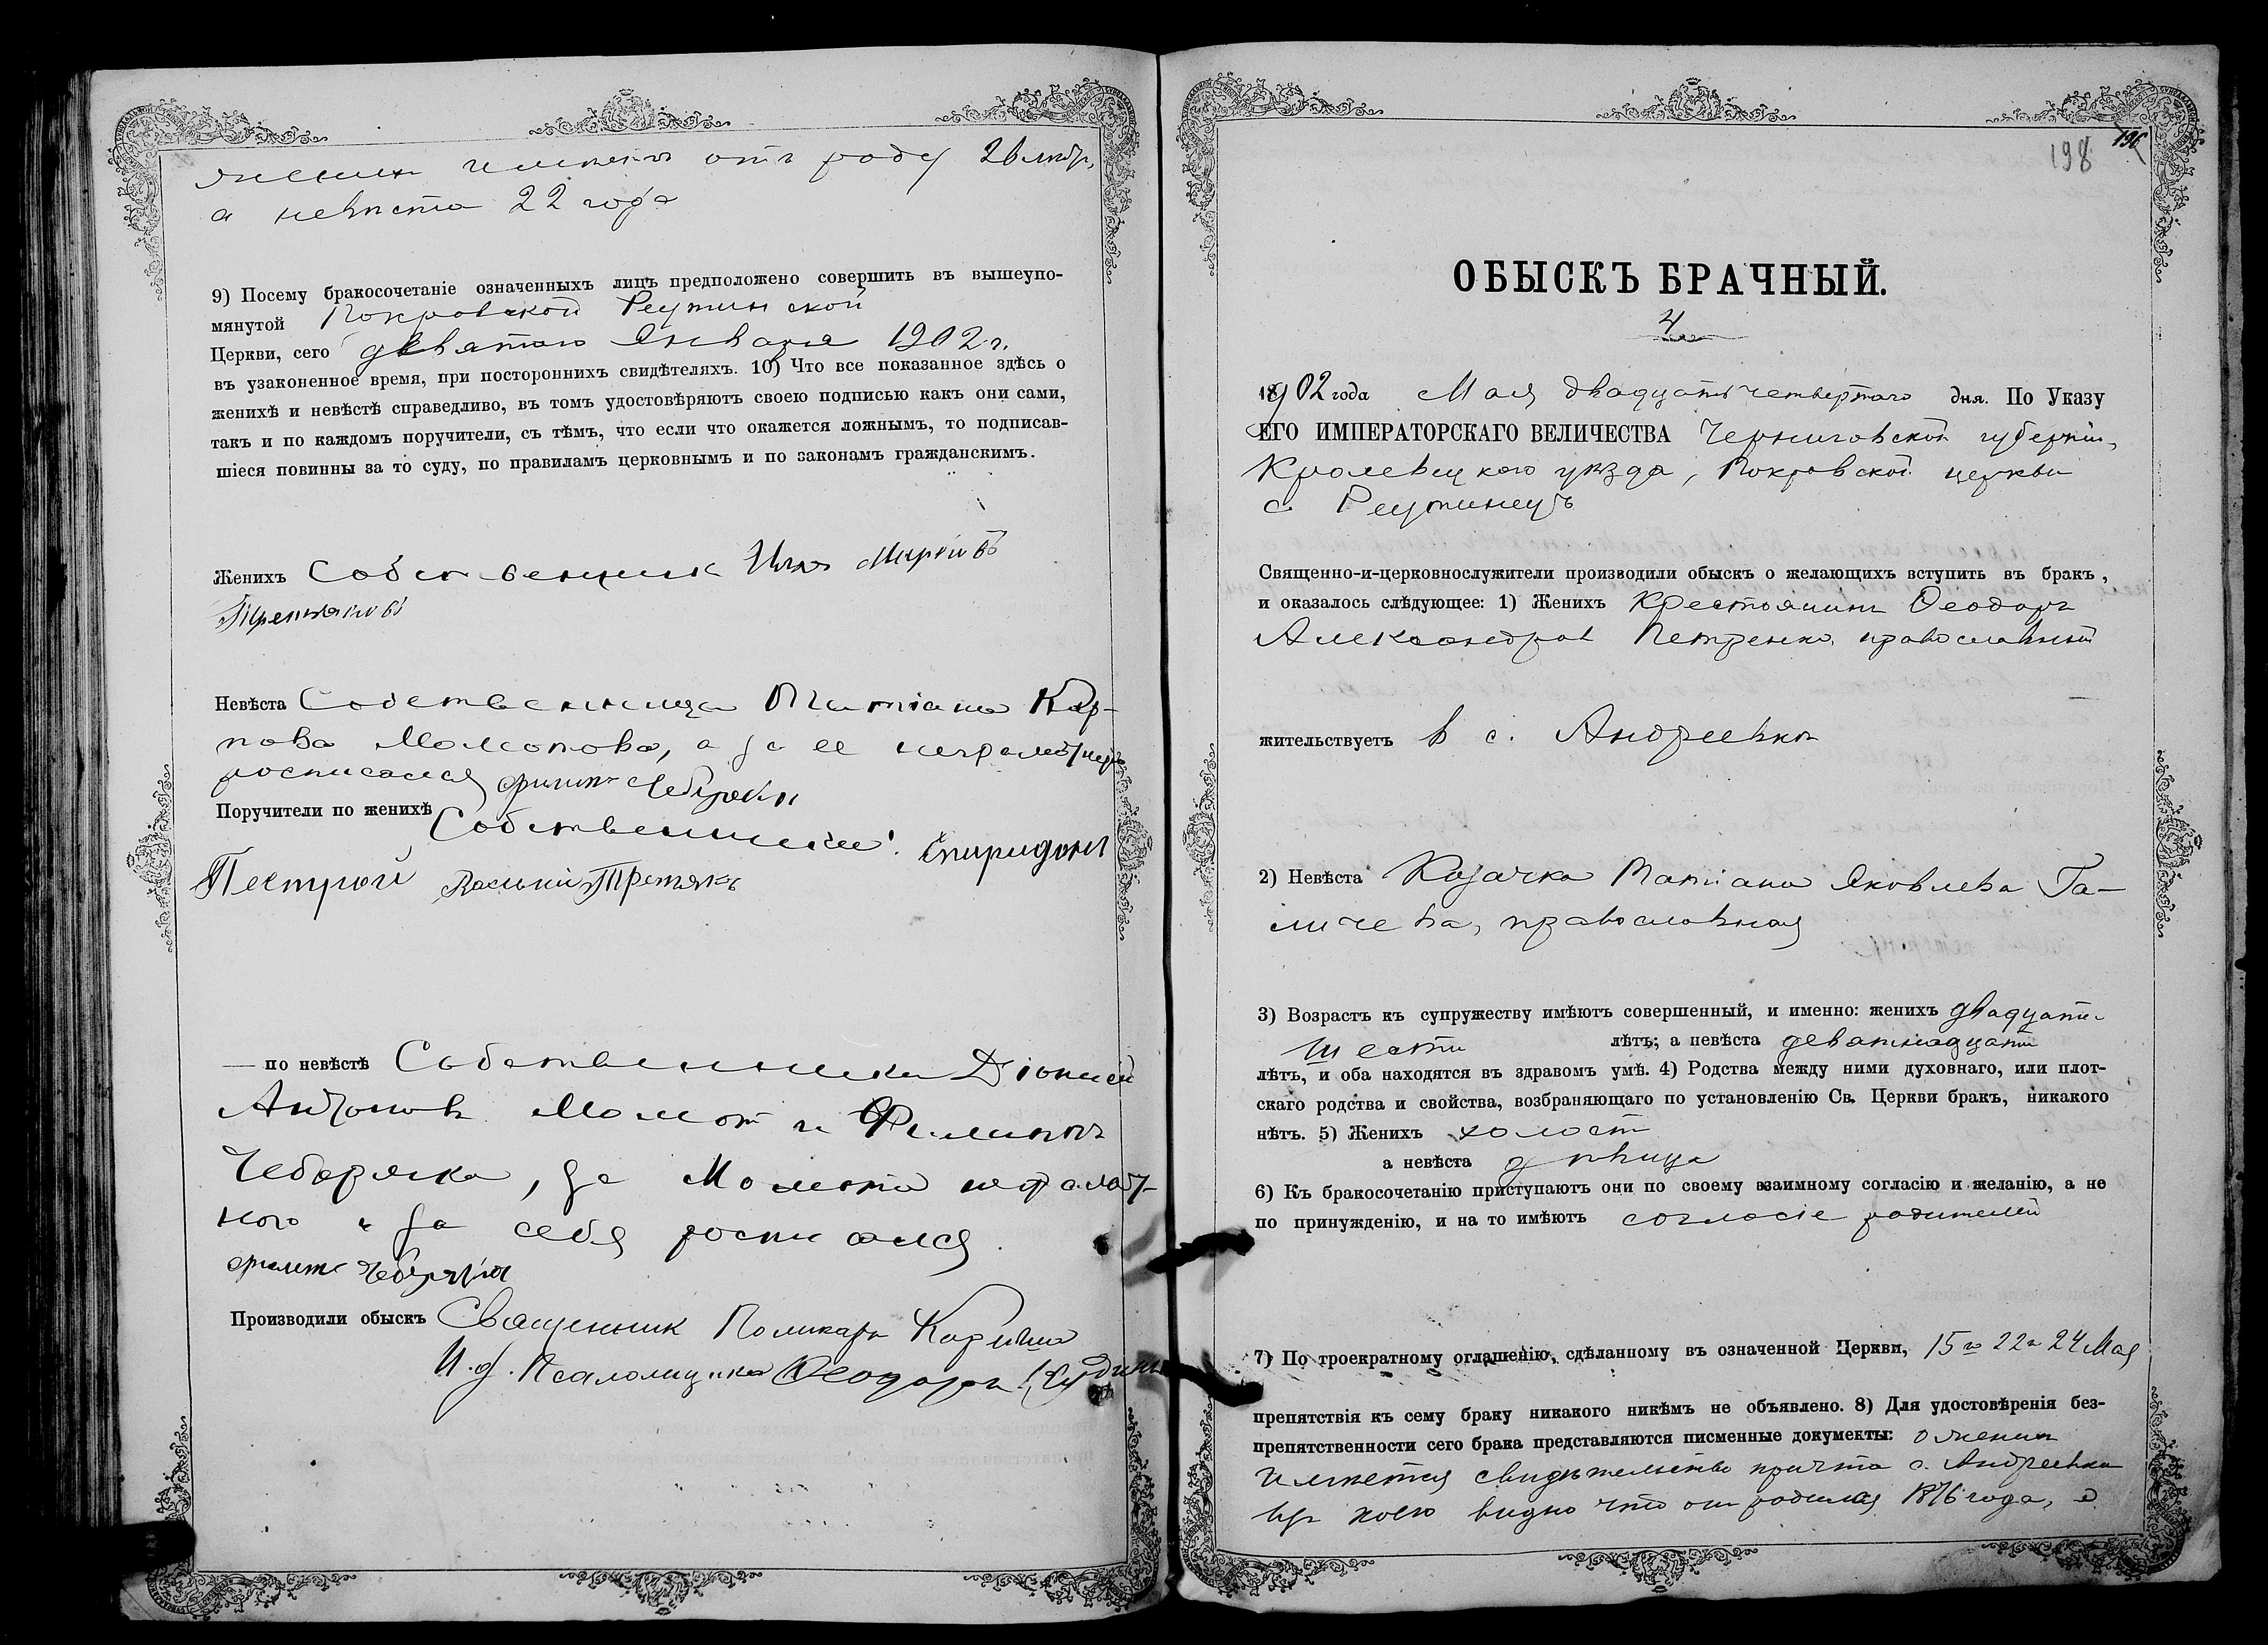 жених имеетъ отъ роду 26 летъ,
а невѣста 22 года
9) Посему бракосочетаніе означенныхъ лицъ предположено совершить въ вышеупо-
мянутой Покровской Реутинской
Церкви, сего девятаго Января 1902 г.
въ узаконенное время, при постороннихъ свидѣтеляхъ. 10) Что все показанное здѣсь о
женихѣ и невѣстѣ справедливо, въ томъ удостовѣряютъ своею подписью какъ они сами,
такъ и по каждомъ поручители, съ тѣмъ, что если что окажется ложнымъ, то подписав-
шіеся повинны за то суду, по правиламъ церковнымъ и по законамъ гражданскимъ.
Женихъ Собственник
Невѣста Собственница Татіана Кар-
пова Момотова, а за ее неграмотную
росписался Филипъ Чеберяка
Поручители по женихѣ Собственники: Спиридонъ
Пестрый Василий Третякъ
— по невѣстѣ Собственники Діонисій
Антоновъ Момот и Филиппъ
Чеберяка, за Момота неграмот-
ного и за себя росписался
Филипъ Чеберяка
Производили обыскъ Священник Поликарпъ
И. д. Псаломщика Ѳеодоръ
198
196
ОБЫСКЪ БРАЧНЫЙ.
4
1902 года Мая двадцать четвертаго дня. По Указу
ЕГО ИМПЕРАТОРСКАГО ВЕЛИЧЕСТВА Черниговской губерніи,
Кролевецкого уѣзда, Покровской церкви
с. Реутинецъ
Священно-и-церковнослужители производили обыскъ о желающихъ вступить въ бракъ,
и оказалось слѣдующее: 1) Женихъ Крестьянинъ Ѳеодоръ
Александров Петренко, православный
жительствуетъ в с. Андреевки
2) Невѣста Козачка Татіана Яковлева Га-
личева, православная
3) Возрастъ къ супружеству имѣютъ совершенный, и именно: женихъ двадцати-
шести лѣтъ; а невѣста девятнадцати
лѣтъ, и оба находятся въ здравомъ умѣ. 4) Родства между ними духовнаго, или плот-
скаго родства и свойства, возбраняющаго по установленію Св. Церкви бракъ, никакого
нѣтъ. 5) Женихъ холост
а невѣста дѣвица
6) Къ бракосочетанію приступаютъ они по своему взаимному согласію и желанію, а не
по принужденію, и на то имѣютъ согласіе родителей
7) По троекратному оглашенію, сдѣланному въ означенной Церкви, 15го 22и 24 Мая
препятствія къ сему браку никакого никѣмъ не объявлено. 8) Для удостовѣренія без-
препятственности сего брака представляются писменные документы: о женихе
имѣется свидѣтельство причта с. Андреевки
изъ коего видно что он родился 1876 года, а